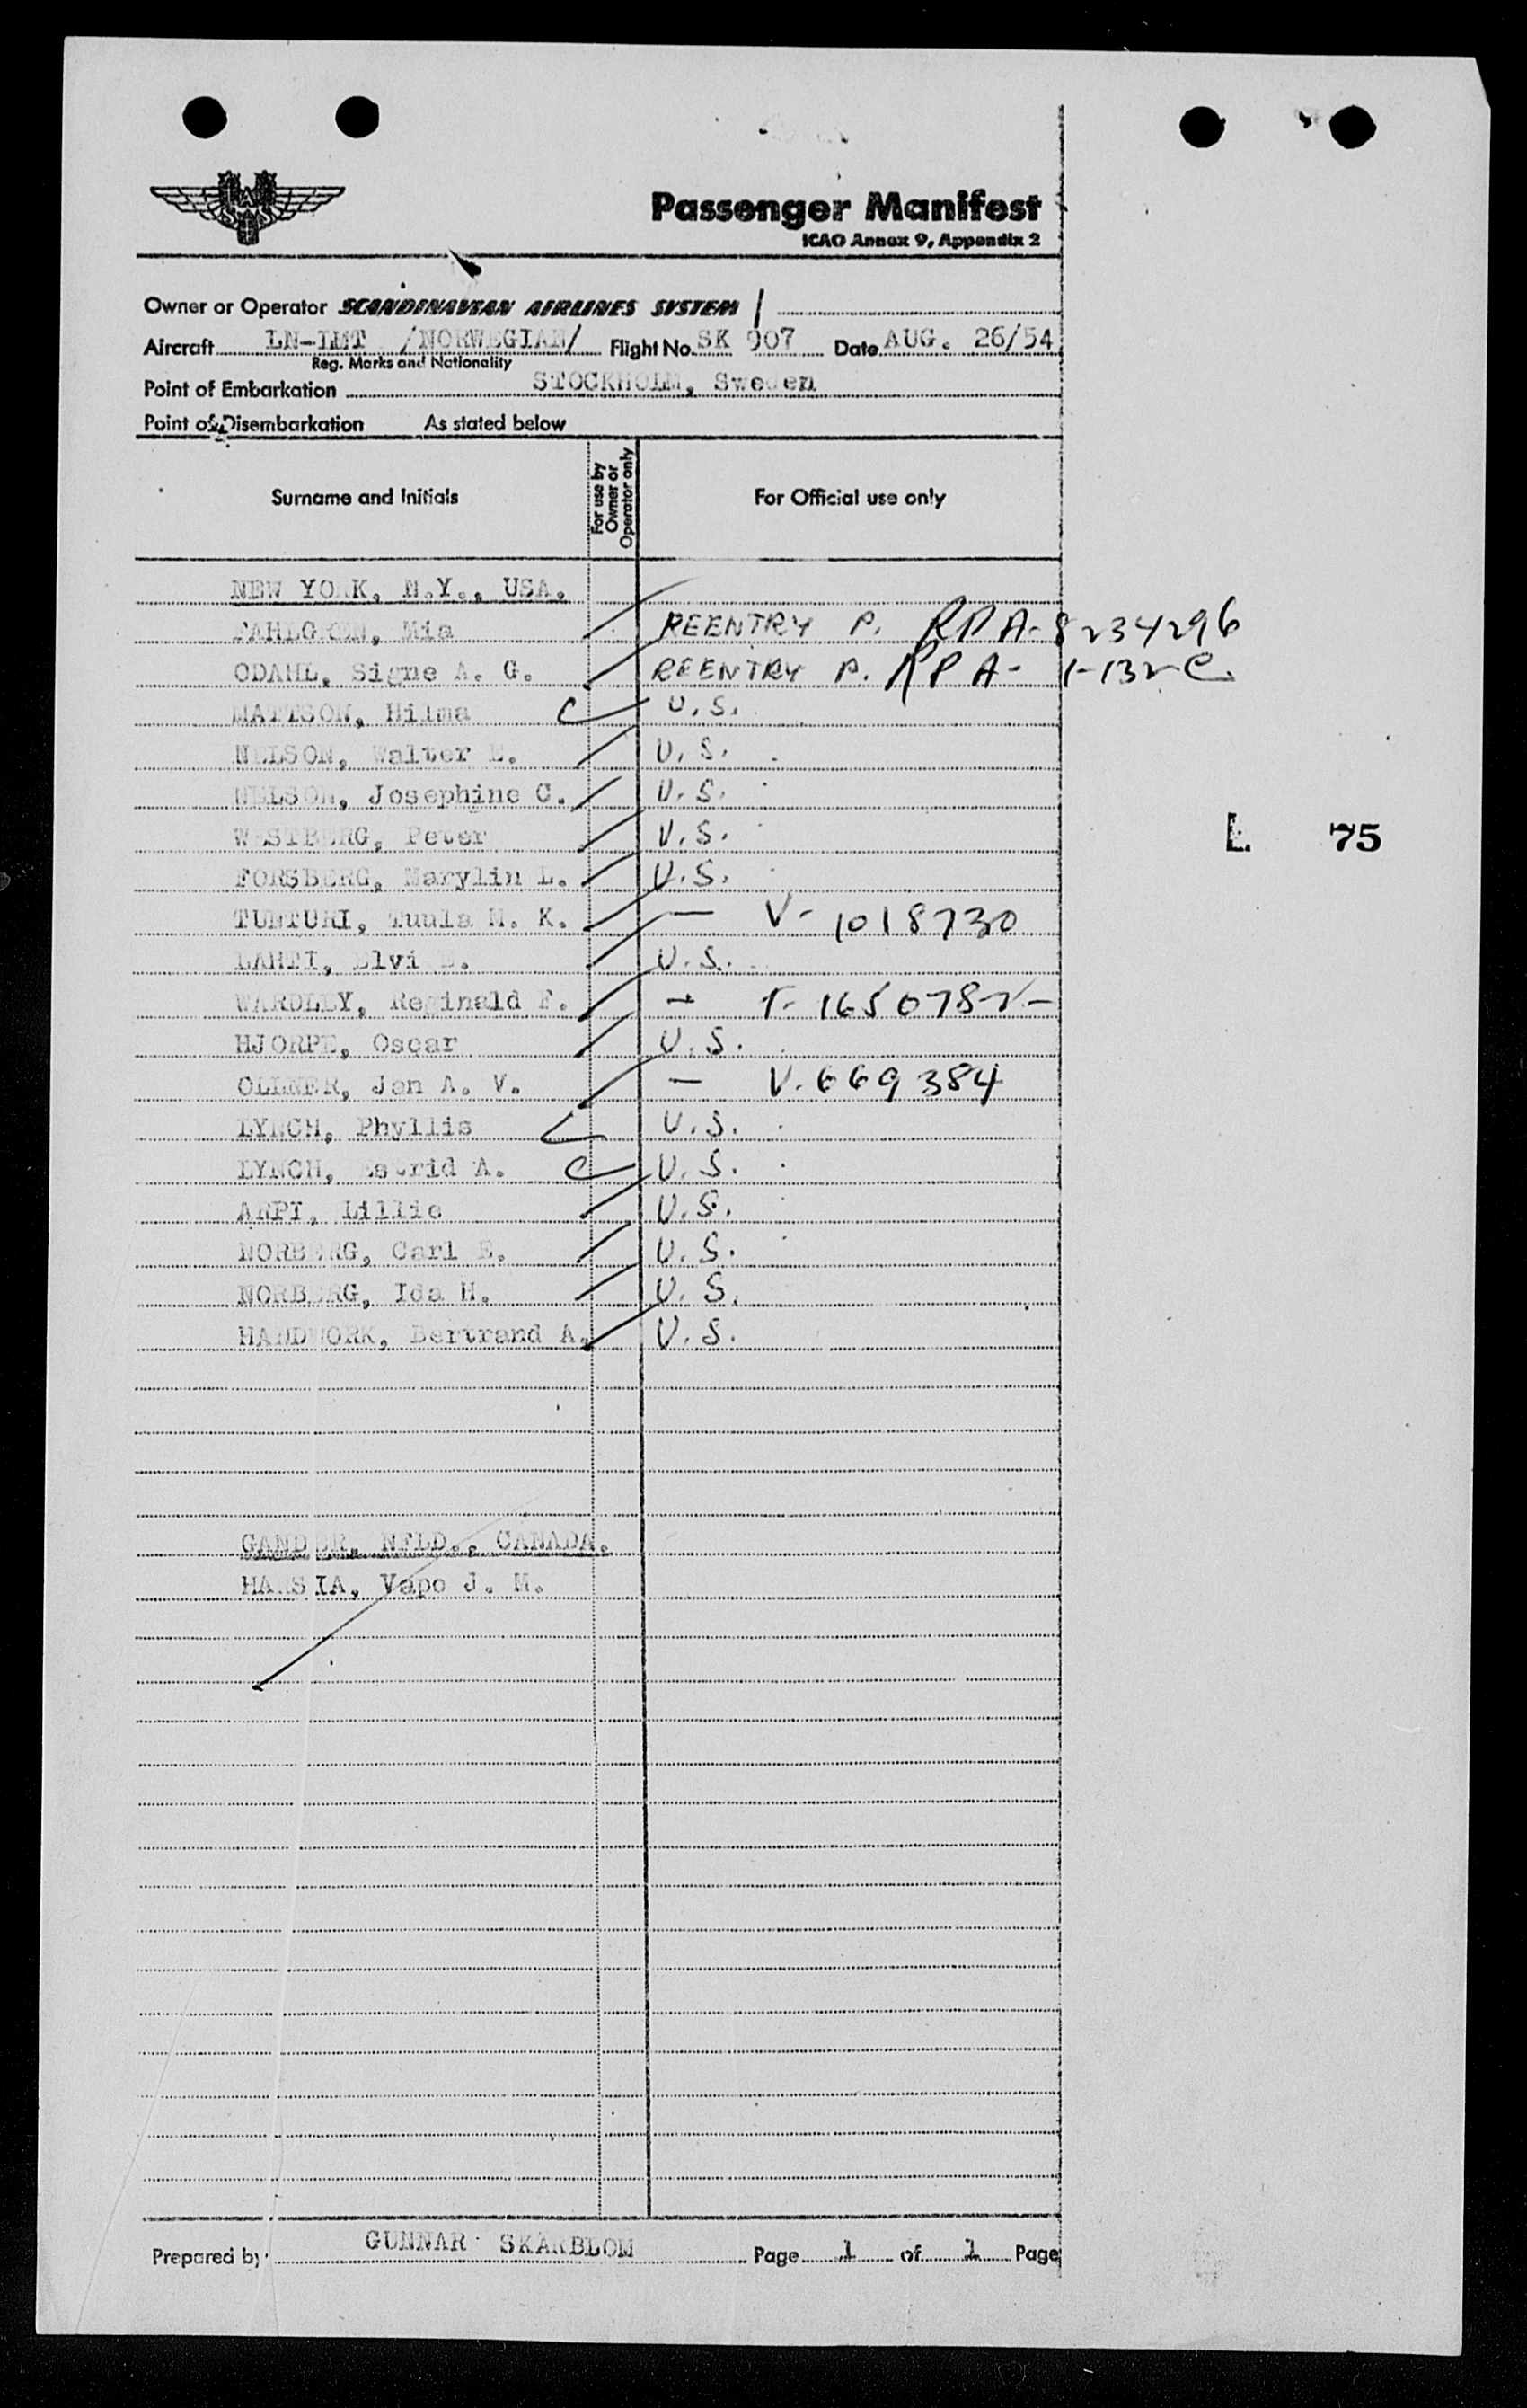 SAS
Passenger Manifest
ICAO Annex 9, Appendix 2
Owner or Operator SCANDINAVIAN AIRLINES SYSTEM /
Aircraft LN-LMT /NORWEGIAN/ Flight No. SK 907 Date AUG. 26/54
Reg. Marks and Nationality
Point of Embarkation STOCKHOLM, Sweden
Point of Disembarkation As stated below
Surname and Initials For use by Owner or Operator only For Official use only
NEW YORK, N.Y., USA.
Mia REENTRY P. RPA-8234296
ODAHL, Signe A. G. REENTRY P. RPA- 1-132-C.
MATTSON, Hilma U.S.
NELSON, Walter E. U.S.
NELSON, Josephine C. U.S.
WESTBERG, Peter U.S.
FORSBERG, Marylin L. U.S.
TUNTURI, Tuula M. K. — V- 1018730
LAHTI, Elvi U.S.
WARDLEY, Reginald F. — 1650782
HJORPE, Oscar U.S.
OLLNER, Jan A. V. — V. 669384
LYNCH, Phyllis U.S.
LYNCH, Astrid A. U.S.
ANPI, Lillie U.S.
NORBERG, Carl E. U.S.
NORBERG, Ida H. U.S.
HANDWORK, Bertrand A. U.S.
L. 75
GANDER, NFLD., CANADA.
Vapo J. M.
Prepared by GUNNAR SKARBLOM Page 1 of 1 Page